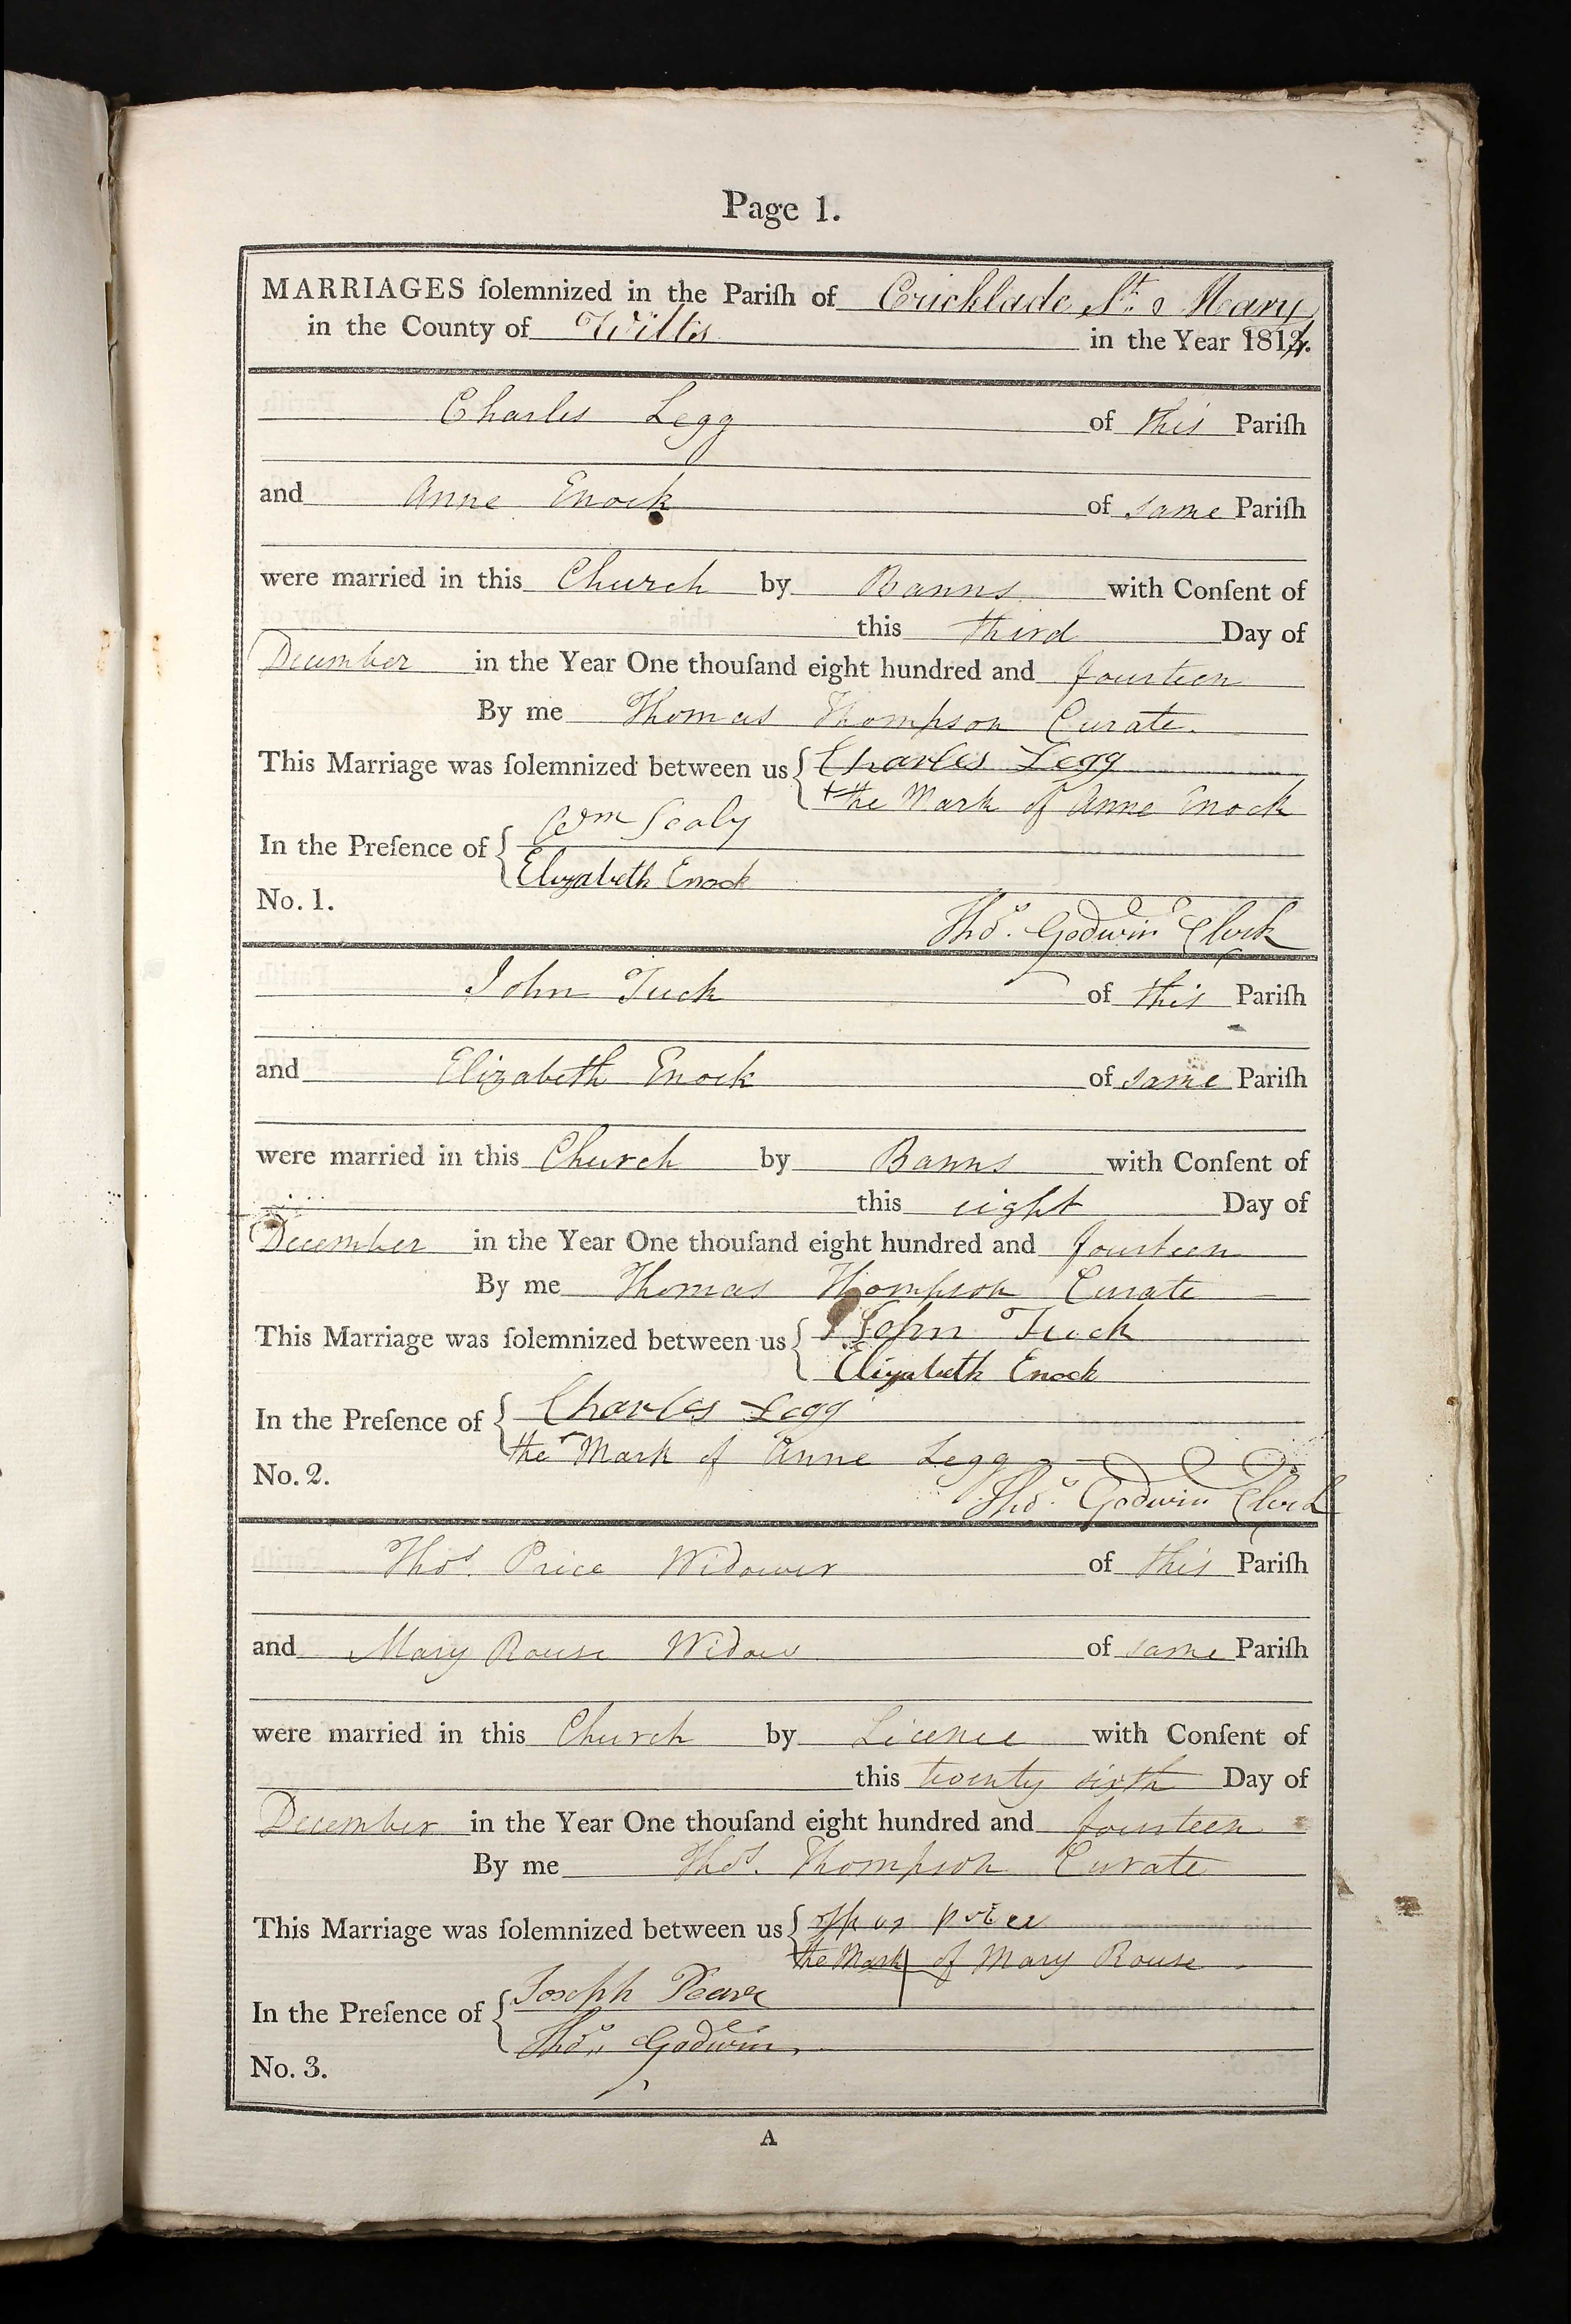 Page 1.
MARRIAGES ſolemnized in the Pariſh of Cricklade St. Mary
in the County of Wilts in the Year 1814.
Charles Legg of this Pariſh
and Anne Enock of same Pariſh
were married in this Church by Banns with Conſent of
this third Day of
December in the Year One thouſand eight hundred and fourteen
By me Thomas Thompson Curate.
This Marriage was ſolemnized between us { Charles Legg
+ the Mark of Anne Enock
In the Preſence of { Wm Sealy
Elizabeth Enock
No. 1.
Thos. Godwin Clerk
John Tuck of this Pariſh
and Elizabeth Enock of same Pariſh
were married in this Church by Banns with Conſent of
this eight Day of
December in the Year One thouſand eight hundred and fourteen
By me Thomas Thompson Curate
This Marriage was ſolemnized between us { John Tuck
Elizabeth Enock
In the Preſence of { Charles Legg
the + Mark of Anne Legg
No. 2.
Thos. Godwin Clerk
Thos. Price Widower of this Pariſh
and Mary Rouse Widow of same Pariſh
were married in this Church by Licence with Conſent of
this twenty sixth Day of
December in the Year One thouſand eight hundred and fourteen
By me Thos. Thompson Curate
This Marriage was ſolemnized between us { price
the Mark of Mary Rouse.
In the Preſence of { Joseph
Thos. Godwin
No. 3.
A